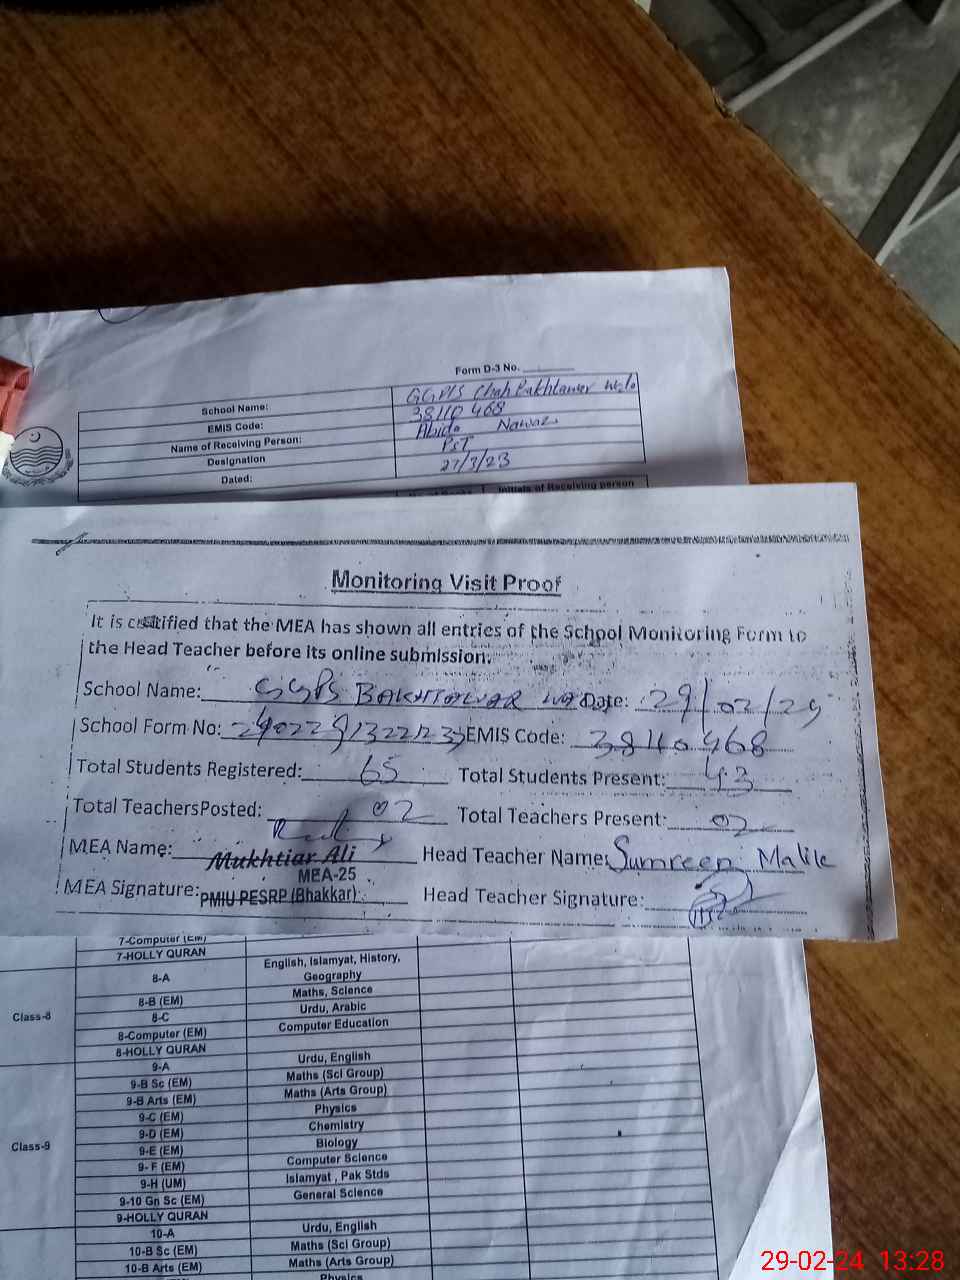 Form D-3 No.
School Name: GGPS Chah Bakhtawar
EMIS Code: 38110468
Name of Receiving Person: Abida Nawaz
Designation PST
Dated: 27/3/23
Initials of Receiving person
Monitoring Visit Proof
It is certified that the MEA has shown all entries of the School Monitoring Form to
the Head Teacher before its online submission.
School Name: GGPS BAKHTAWAR Date: 29/02/24
School Form No: EMIS Code: 38110468
Total Students Registered: 65 Total Students Present: 43
Total Teachers Posted: 02 Total Teachers Present: 02
MEA Name: Mukhtiar Ali Head Teacher Name: Sumreen Malik
MEA-25
MEA Signature: PMIU PESRP (Bhakkar) Head Teacher Signature:
7-Computer (EM)
7-HOLLY QURAN
Class-8
8-A English, Islamyat, History, Geography
8-B (EM) Maths, Science
8-C Urdu, Arabic
8-Computer (EM) Computer Education
8-HOLLY QURAN
Class-9
9-A Urdu, English
9-B Sc (EM) Maths (Sci Group)
9-B Arts (EM) Maths (Arts Group)
9-C (EM) Physics
9-D (EM) Chemistry
9-E (EM) Biology
9- F (EM) Computer Science
9-H (UM) Islamyat , Pak Stds
9-10 Gn Sc (EM) General Science
9-HOLLY QURAN
10-A Urdu, English
10-B Sc (EM) Maths (Sci Group)
10-B Arts (EM) Maths (Arts Group)
Physics
29-02-24 13:28